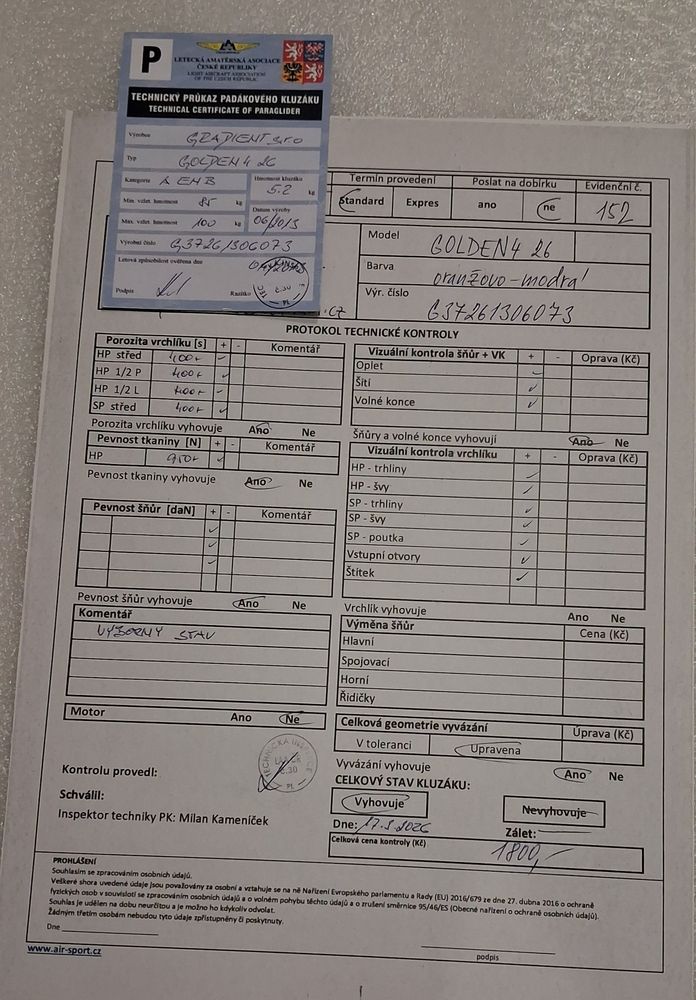 P
LETECKÁ AMATÉRSKÁ ASOCIACE
ČESKÉ REPUBLIKY
LIGHT AIRCRAFT ASSOCIATION
OF THE CZECH REPUBLIC
TECHNICKÝ PRŮKAZ PADÁKOVÉHO KLUZÁKU
TECHNICAL CERTIFICATE OF PARAGLIDER
Výrobce GRADIENT s.r.o
Typ GOLDEN 4 26
Kategorie A EN B Hmotnost kluzáku 5.2 kg
Min. vzlet. hmotnost 85 kg Datum výroby 06/2013
Max. vzlet. hmotnost 100 kg
Výrobní číslo G37261306073
Letová způsobilost ověřena dne
Podpis Razítko
Termín provedení Poslat na dobírku Evidenční č.
Standard Expres ano ne 152
Model GOLDEN4 26
Barva oranžovo-modrá
Výr. číslo G37261306073
.CZ
PROTOKOL TECHNICKÉ KONTROLY
Porozita vrchlíku [s] + - Komentář
HP střed 400+
HP 1/2 P 400+
HP 1/2 L 400+
SP střed 400+
Porozita vrchlíku vyhovuje Ano Ne
Pevnost tkaniny [N] + - Komentář
HP
Pevnost tkaniny vyhovuje Ano Ne
Pevnost šňůr [daN] + - Komentář
Pevnost šňůr vyhovuje Ano Ne
Komentář
VÝBORNÝ STAV
Motor Ano Ne
Vizuální kontrola šňůr + VK + - Oprava (Kč)
Oplet
Šití
Volné konce
Šňůry a volné konce vyhovují Ano Ne
Vizuální kontrola vrchlíku + - Oprava (Kč)
HP - trhliny
HP - švy
SP - trhliny
SP - švy
SP - poutka
Vstupní otvory
Štítek
Vrchlík vyhovuje Ano Ne
Výměna šňůr Cena (Kč)
Hlavní
Spojovací
Horní
Řidičky
Celková geometrie vyvázání Úprava (Kč)
V toleranci Upravena
Vyvázání vyhovuje Ano Ne
Kontrolu provedl:
Schválil:
Inspektor techniky PK: Milan Kameníček
CELKOVÝ STAV KLUZÁKU:
Vyhovuje Nevyhovuje
Dne: 17.3.2026 Zálet:
Celková cena kontroly (Kč) 1800,-
PROHLÁŠENÍ
Souhlasím se zpracováním osobních údajů.
Veškeré shora uvedené údaje jsou považovány za osobní a vztahuje se na ně Nařízení Evropského parlamentu a Rady (EU) 2016/679 ze dne 27. dubna 2016 o ochraně
fyzických osob v souvislosti se zpracováním osobních údajů a o volném pohybu těchto údajů a o zrušení směrnice 95/46/ES (Obecné nařízení o ochraně osobních údajů).
Souhlas je udělen na dobu neurčitou a je možno ho kdykoliv odvolat.
Žádným třetím osobám nebudou tyto údaje zpřístupněny či poskytnuty.
Dne
podpis
www.air-sport.cz